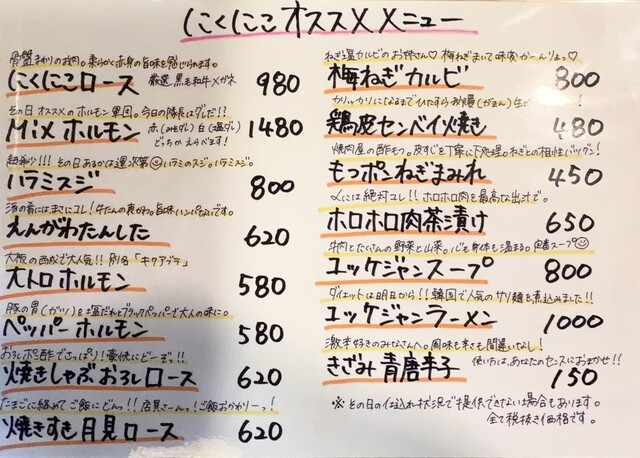 にくにこ オススメメニュー
骨盤まわりのお肉。柔らかく赤身の旨味を感じられます。
にくにこロース 厳選 黒毛和牛メガネ 980
その日オススメのホルモン軍団。今日の隊長はダレだ!?
Mixホルモン 赤(みそダレ)白(塩ダレ)どっちかえらべます! 1480
超希少!!! その日あるかは運次第 ハラミのスジ。ハラミスジ。
ハラミスジ 800
酒の肴にはまさにコレ!牛たんの裏がわ。旨味ハンパないです。
えんがわたんした 620
大阪の西成で大人気!! 別名「キクアブラ」
大トロホルモン 580
豚の胃(ガツ)を塩だれとブラックペッパーで大人の味に。
ペッパーホルモン 580
おろしポン酢でさっぱり!豪快にどーぞっ!!
焼きしゃぶおろしロース 620
たまごに絡めてご飯にどんっ!! 店員さーんっ!ご飯おかわりーっ!
焼きすき月見ロース 620
ねぎ塩カルビのお姉さん♡ 梅ねぎまいて味変かーんりょっ♡
梅ねぎカルビ 800
カリッカリになるまでひたすらお預け
鶏皮センベイ焼き 480
焼肉屋の酢もつ。皮すじを丁寧に下処理。ねぎとの相性バツグン!
もつポンねぎまみれ 450
〆には絶対コレ!! ホロホロ肉を最高な出汁で。
ホロホロ肉茶漬け 650
牛肉とたくさんの野菜と山菜。心も身体も温まる。旨辛スープ
ユッケジャンスープ 800
ダイエットは明日から!! 韓国で人気のサリ麺を煮込みました!!
ユッケジャンラーメン 1000
激辛好きのみなさんへ。風味も辛さも間違いなし!
きざみ青唐辛子 使い方は、あなたのセンスにおまかせ!! 150
※その日の仕込れ状況で提供できない場合もあります。
全て税抜き価格です。